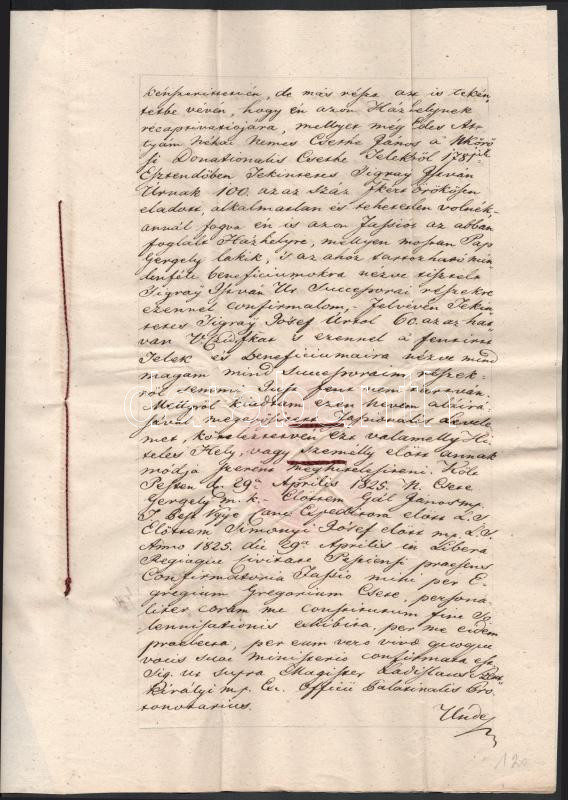 kénszerittetvén, de más részt azt is tekén,
tetbe vévén, hogy én azon Házhelynek
recaptivatiojára, mellyet még Édes At-
tyám Néhai Nemes Csethe János a
Donationalis Csethe Telekből
Esztendőben Tekintetes Tigray István
Urnak 100. azaz Száz örökösen
eladott, alkalmatlan és tehetetlen volnék
annál fogva én is azon Fassiót az abban
foglalt Házhelyre, mellyen mostan Pap
Gergely lakik, 's az ahoz tartozható min
denféle beneficiumokra nézve tisztelt
Tigray István Úr Successorai részekre
ezennel confirmalom, felvévén Tekin
tetes Tigray Jósef Úrtól 60. azaz hat
van 's ezennel a fentirt
Telek és Beneficiumaira nézve mind
magam mind Successoraim részek-
ről semmi Just fent nem tartván.
Mellyről kiadtam ezen nevem aláirá
sával megerősitett Fassionalis Levele
met, köteleztetvén ezt valamelly Hi
teles Hely, vagy Személly előtt annak
módja szerint meghitelesiteni. Költ
Pesten d. 29a Aprilis 1825. N. Csete
Gergely m. k. Előttem Gál János mp.
T. Pest Vgye Expeditora előtt L. S.
Előttem Simonyi Jósef előtt mp. L. S.
Anno 1825. die 29a Aprilis in Libera
Regiaque Civitate Pestiensi praesens
Confirmatoria Fassio mihi per E-
gregium Gregorium Csete, persona
liter coram me constitutum fine So
lennisationis exhibita, per me eidem
praelecta, per eum vero vivae quoque
vocis suae ministerio confirmata est.
Sig. ut supra Magister Ladislaus Szent
királyi mp. Officii Palatinalis Pro
tonotarius.
Unde
12